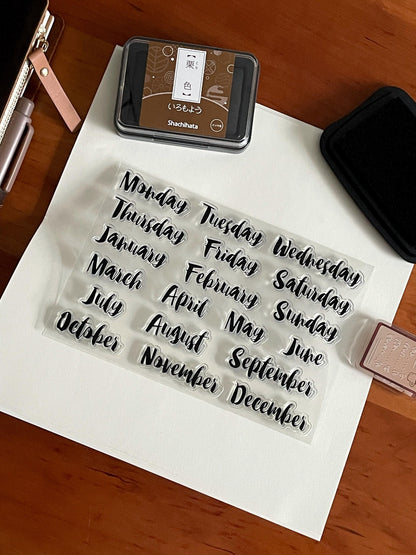 【栗色】
いろもよう
Shachihata
Monday Tuesday Wednesday
Thursday Friday Saturday
January February Sunday
March April May June
July August September
October November December